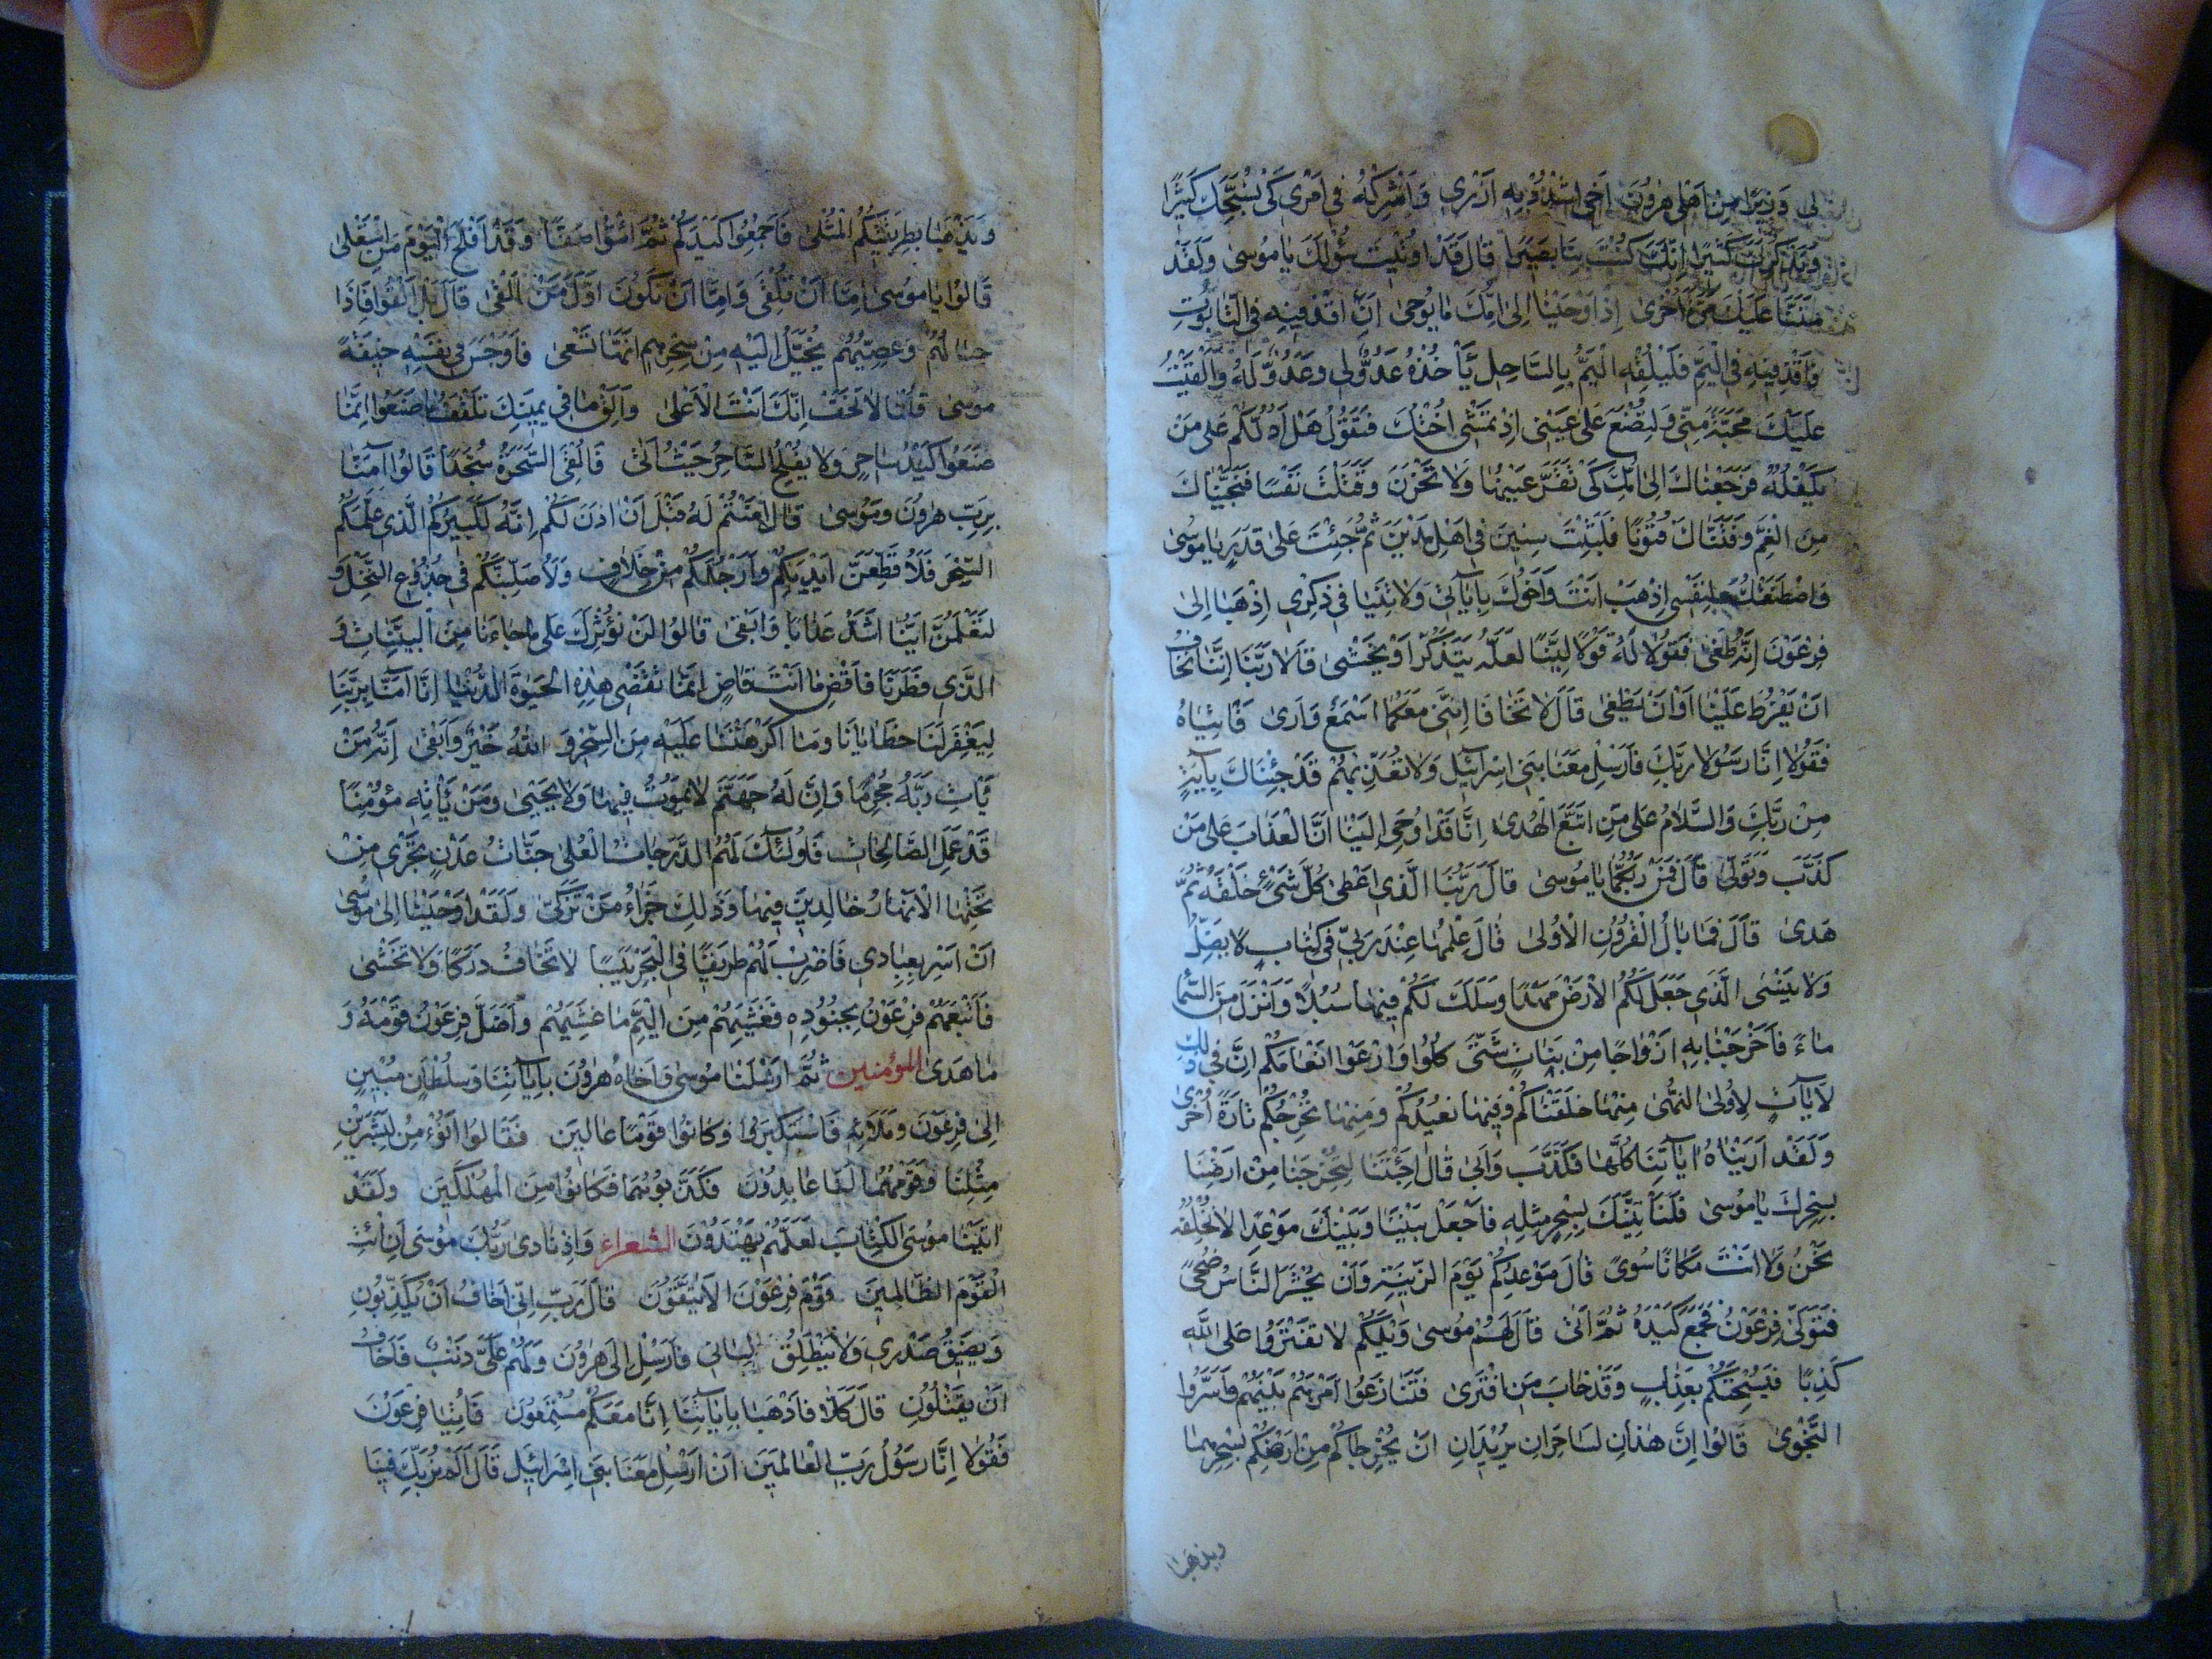 لى وزيرا من اهلى هرون اخى اشدد به ازرى واشركه فى امرى كى نسبحك كثيرا
ونذكرك كثيرا انك كنت بنا بصيرا قال قد اوتيت سؤلك يا موسى ولقد
مننا عليك مرة اخرى اذ اوحينا الى امك ما يوحى ان اقذفيه فى التابوت
فاقذفيه فى اليم فليلقه اليم بالساحل يأخذه عدو لى وعدو له والقيت
عليك محبة منى ولتصنع على عينى اذ تمشى اختك فتقول هل ادلكم على من
يكفله فرجعناك الى امك كى تقر عينها ولا تحزن وقتلت نفسا فنجيناك
من الغم وفتناك فتونا فلبثت سنين فى اهل مدين ثم جئت على قدر يا موسى
واصطنعتك لنفسى اذهب انت واخوك بآياتى ولا تنيا فى ذكرى اذهبا الى
فرعون انه طغى فقولا له قولا لينا لعله يتذكر او يخشى قالا ربنا اننا نخاف
ان يفرط علينا او ان يطغى قال لا تخافا اننى معكما اسمع وارى فاتياه
فقولا انا رسولا ربك فارسل معنا بنى اسرآئيل ولا تعذبهم قد جئناك بآية
من ربك والسلام على من اتبع الهدى انا قد اوحى الينا ان العذاب على من
كذب وتولى قال فمن ربكما يا موسى قال ربنا الذى اعطى كل شىء خلقه ثم
هدى قال فما بال القرون الاولى قال علمها عند ربى فى كتاب لا يضل
ولا ينسى الذى جعل لكم الارض مهدا وسلك لكم فيها سبلا وانزل من السما
ماء فاخرجنا به ازواجا من نبات شتى كلوا وارعوا انعامكم ان فى ذلك
لآيات لاولى النهى منها خلقناكم وفيها نعيدكم ومنها نخرجكم تارة اخرى
ولقد اريناه اياتنا كلها فكذب وابى قال اجئتنا لتخرجنا من ارضنا
بسحرك يا موسى فلنأتينك بسحر مثله فاجعل بيننا وبينك موعدا لا نخلفه
نحن ولا انت مكانا سوى قال موعدكم يوم الزينة وان يحشر الناس ضحى
فتولى فرعون فجمع كيده ثم اتى قال لهم موسى ويلكم لا تفتروا على الله
كذبا فيسحتكم بعذاب وقد خاب من افترى فتنازعوا امرهم بينهم واسروا
النجوى قالوا ان هذان لساحران يريدان ان يخرجاكم من ارضكم بسحرهما
ويذهبا
ويذهبا بطريقتكم المثلى فاجمعوا كيدكم ثم ائتوا صفا وقد افلح اليوم من استعلى
قالوا يا موسى اما ان تلقى واما ان نكون اول من القى قال بل القوا فاذا
حبالهم وعصيهم يخيل اليه من سحرهم انها تسعى فاوجس فى نفسه خيفة
موسى قلنا لا تخف انك انت الاعلى والق ما فى يمينك تلقف ما صنعوا انما
صنعوا كيد ساحر ولا يفلح الساحر حيث اتى فالقى السحرة سجدا قالوا امنا
برب هرون وموسى قال امنتم له قبل ان اذن لكم انه لكبيركم الذى علمكم
السحر فلاقطعن ايديكم وارجلكم من خلاف ولاصلبنكم فى جذوع النخل و
لتعلمن اينا اشد عذابا وابقى قالوا لن نؤثرك على ما جاءنا من البينات و
الذى فطرنا فاقض ما انت قاض انما تقضى هذه الحيوة الدنيا انا امنا بربنا
ليغفر لنا خطايانا وما اكرهتنا عليه من السحر و الله خير وابقى انه من
يأت ربه مجرما فان له جهنم لا يموت فيها ولا يحيى ومن يأته مؤمنا
قد عمل الصالحات فاولئك لهم الدرجات العلى جنات عدن تجرى من
تحتها الانهار خالدين فيها وذلك جزاء من تزكى ولقد اوحينا الى موسى
ان اسر بعبادى فاضرب لهم طريقا فى البحر يبسا لا تخاف دركا ولا تخشى
فاتبعهم فرعون بجنوده فغشيهم من اليم ما غشيهم واضل فرعون قومه و
ما هدى المؤمنين ثم ارسلنا موسى واخاه هرون بآياتنا وسلطان مبين
الى فرعون وملائه فاستكبروا وكانوا قوما عالين فقالوا انؤمن لبشرين
مثلنا وقومهما لنا عابدون فكذبوهما فكانوا من المهلكين ولقد
اتينا موسى الكتاب لعلهم يهتدون الشعراء واذ نادى ربك موسى ان ائت
القوم الظالمين قوم فرعون الا يتقون قال رب انى اخاف ان يكذبون
ويضيق صدرى ولا ينطلق لسانى فارسل الى هرون ولهم على ذنب فاخاف
ان يقتلون قال كلا فاذهبا باياتنا انا معكم مستمعون فاتيا فرعون
فقولا انا رسول رب العالمين ان ارسل معنا بنى اسرائيل قال الم نربك فينا